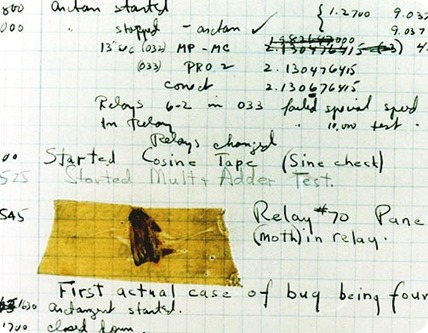 800 arctan started {1.2700 9.032
000 " stopped - arctan ✓ 9.037
13"uc (032) MP - MC 2.130476415
(033) PRO 2 2.130476415
correct 2.130676415
Relays 6-2 in 033 failed special speed
In Relay " 10,000 test .
Relays changed
00 Started Cosine Tape (Sine check)
525 Started Mult + Adder Test.
545 Relay #70 Pane
(moth) in relay.
First actual case of bug being foun
1630 arctangent started.
1700 closed down